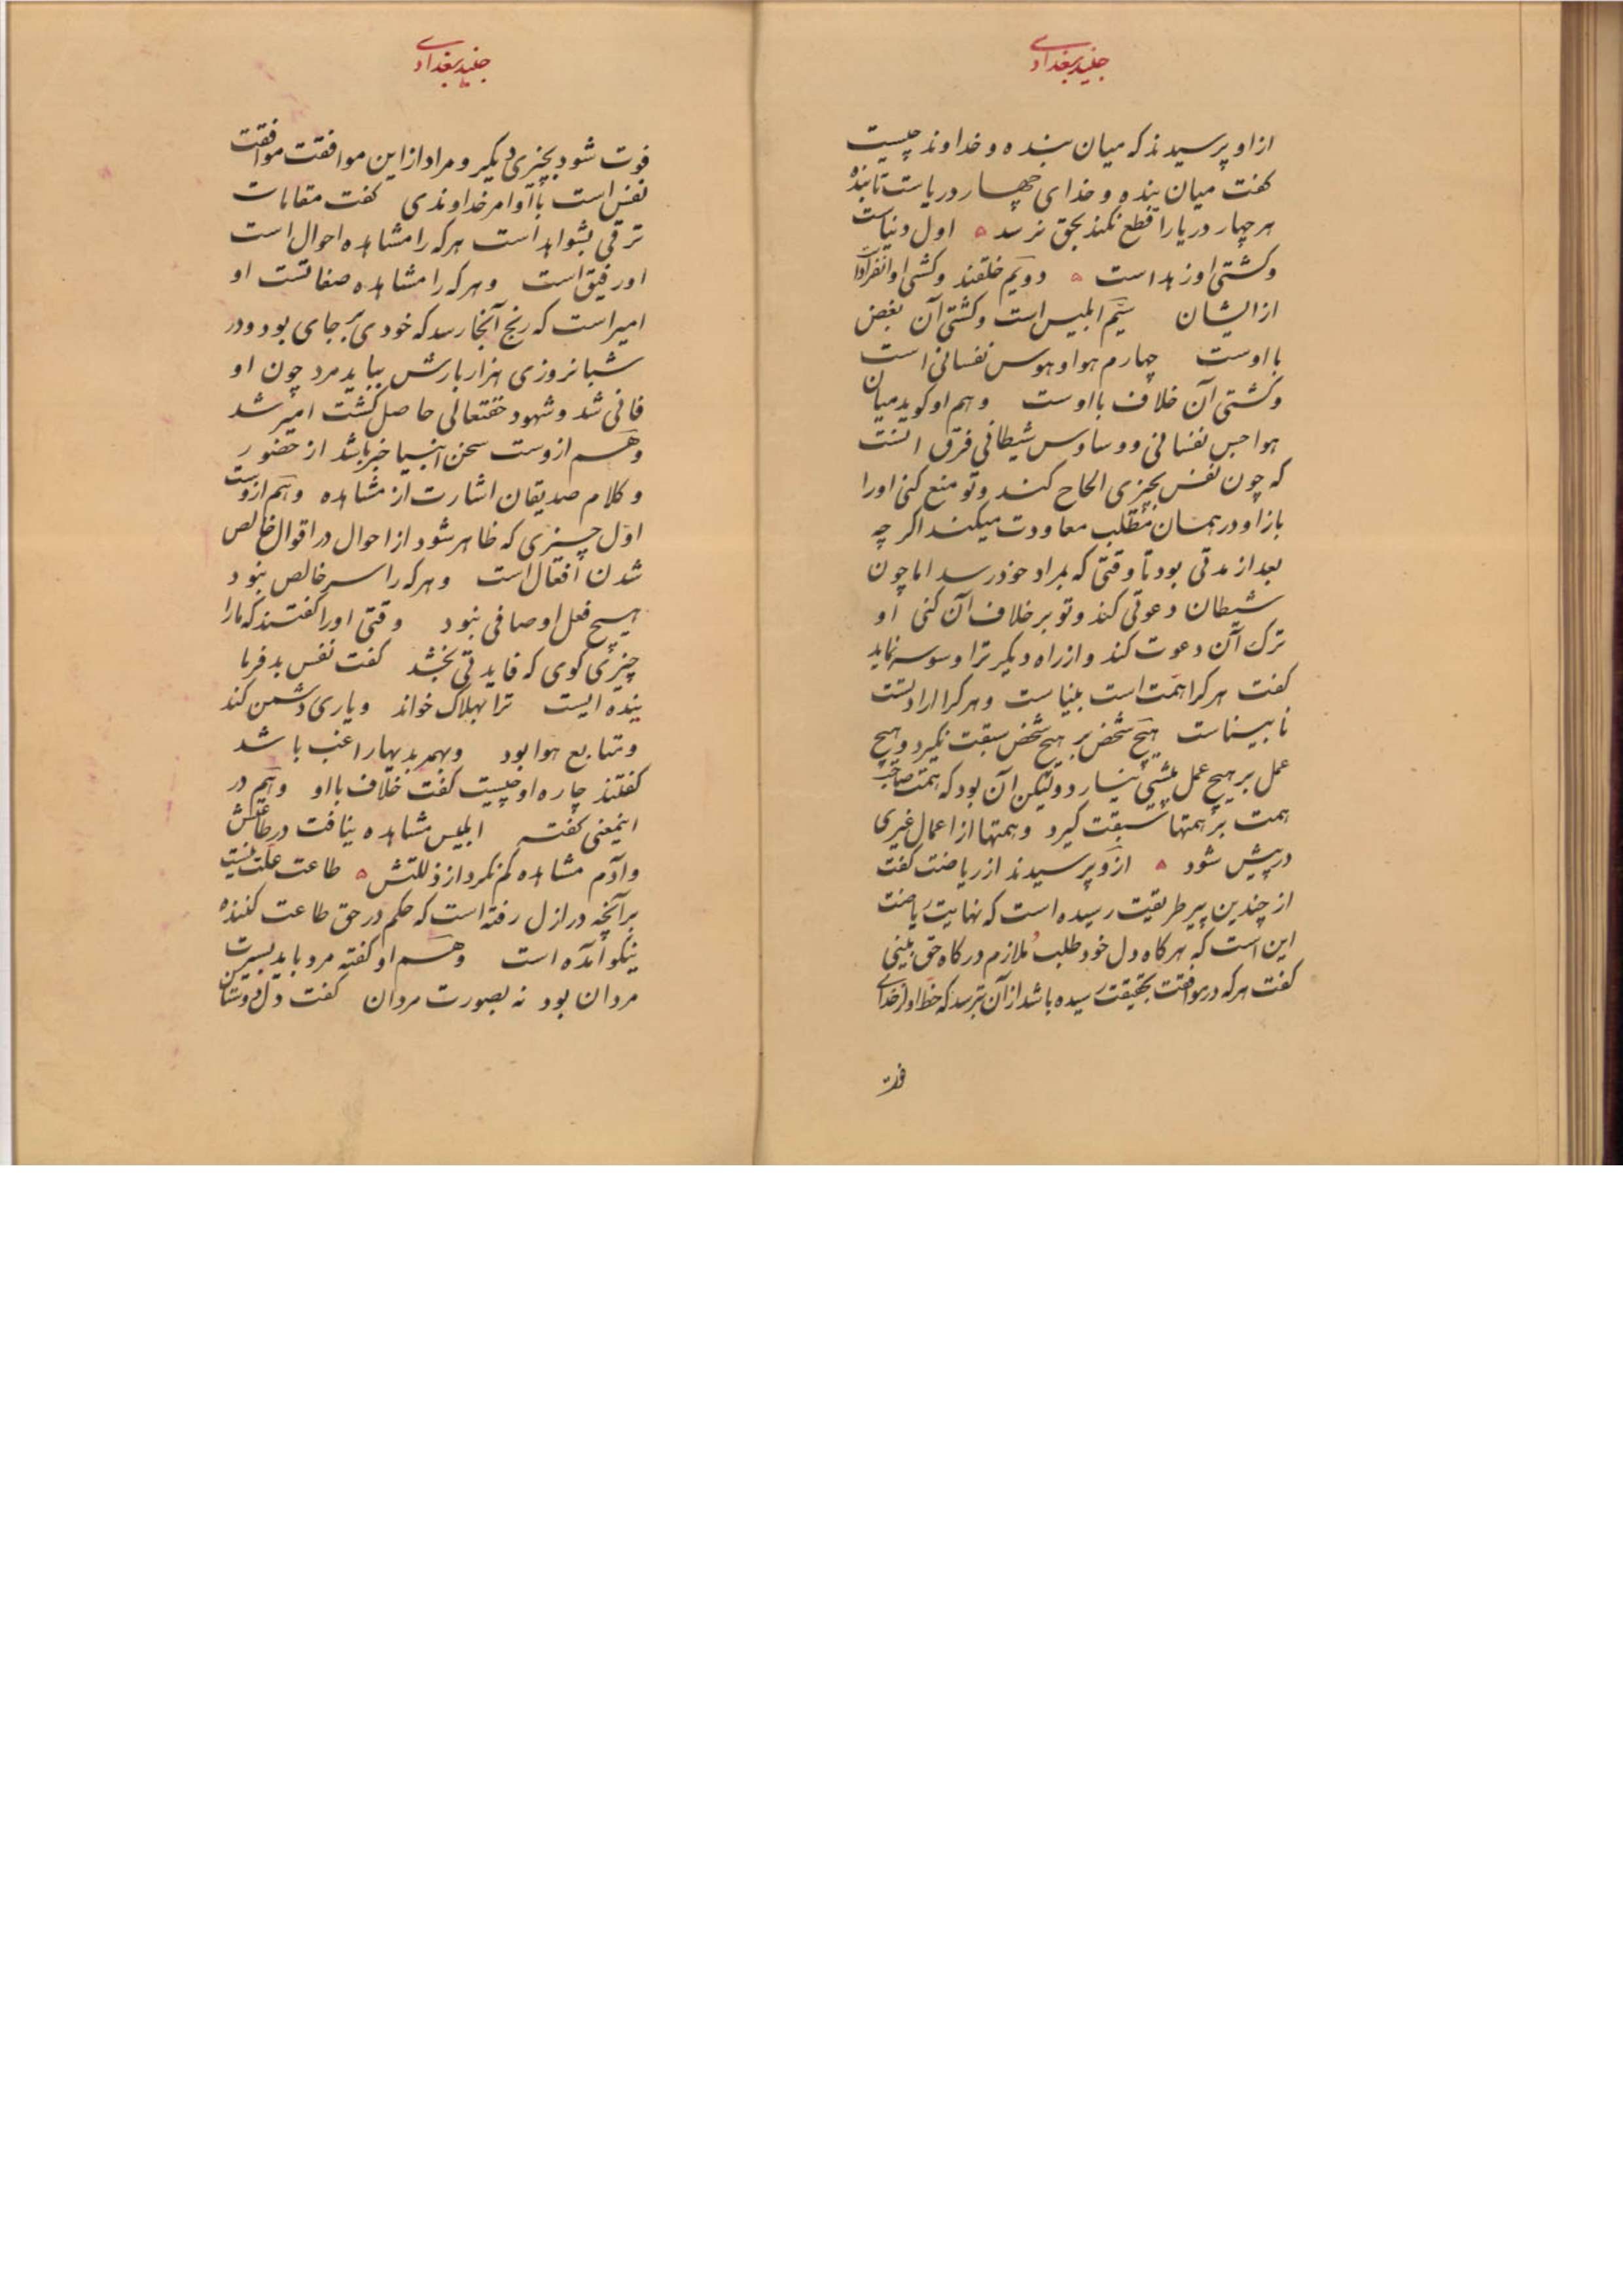 جنید بغدادی
از او پرسیدند که میان بنده و خداوند چیست
کفت میان بنده و خدای چهار دریاست تا بنده
هر چهار دریا را قطع نکند بحق نرسد ۵ اول دنیاست
وکشتی او زهد است ۵ دویم خلقند وکشتی او انفراد
از ایشان سیم ابلیس است وکشتی آن بغض
با اوست چهارم هوا و هوس نفسانی است
وکشتی آن خلاف با اوست وهم او کوید میان
هواجس نفسانی و وساوس شیطانی فرق انست
که چون نفس بچیزی الحاح کند وتو منع کنی اورا
باز او در همان مطلب معاودت میکند اکر چه
بعد از مدتی بود تا وقتی که بمراد خود رسد اما چون
شیطان دعوتی کند وتو برخلاف آن کنی او
ترک آن دعوت کند واز راه دیکر ترا وسوسه نماید
کفت هر کرا همت است بیناست وهر کرا ارادتست
نابیناست هیچ شخص بر هیچ شخص سبقت نکیرد وهیچ
عمل بر هیچ عمل پیشی نیارد ولیکن آن بود که همت صاحب
همت بر همتها سبقت کیرد وهمتها از اعمال غیری
در پیش شود ۵ ازو پرسیدند از ریاضت کفت
از چندین پیر طریقیت رسیده است که نهایت ریاضت
این است که هرکاه دل خود طلب ملازم درکاه حق بینی
کفت هرکه در موافقت بحقیقت رسیده باشد از آن بترسد که حظ او از خدای
فوت
جنید بغدادی
فوت شود بچیزی دیکر و مراد از این موافقت موافقت
نفس است با اوامر خداوندی کفت مقامات
ترقی بشواهد است هرکه را مشاهده احوال است
او رفیق است وهرکه را مشاهده صفاتست او
امیر است که رنج آنجا رسد که خودی بر جای بود ودر
شبانروزی هزار بارش بباید مرد چون او
فانی شد وشهود حقتعالی حاصل کشت امیر شد
وهم ازوست سخن انبیا خبر باشد از حضور
وکلام صدیقان اشارت از مشاهده وهم ازوست
اول چیزی که ظاهر شود از احوال در اقوال خالص
شدن افعال است وهرکه را سر خالص نبود
هیچ فعل او صافی نبود وقتی اورا کفتند که مارا
چیزی کوی که فایدتی بخشد کفت نفس بد فرما
ینده ایست ترا بهلاک خواند ویاری دشمن کند
ومتابع هوا بود وبهمه بدیها راغب باشد
کفتند چاره او چیست کفت خلاف با او وهم در
اینمعنی کفته ابلیس مشاهده نیافت در طاعتش
وآدم مشاهده کم نکرد از ذللتش ۵ طاعت علت نیست
برآنچه در ازل رفته است که حکم در حق طاعت کننده
نیکو آمده است وهم او کفته مرد باید بسیرت
مردان بود نه بصورت مردان کفت دل دوستان